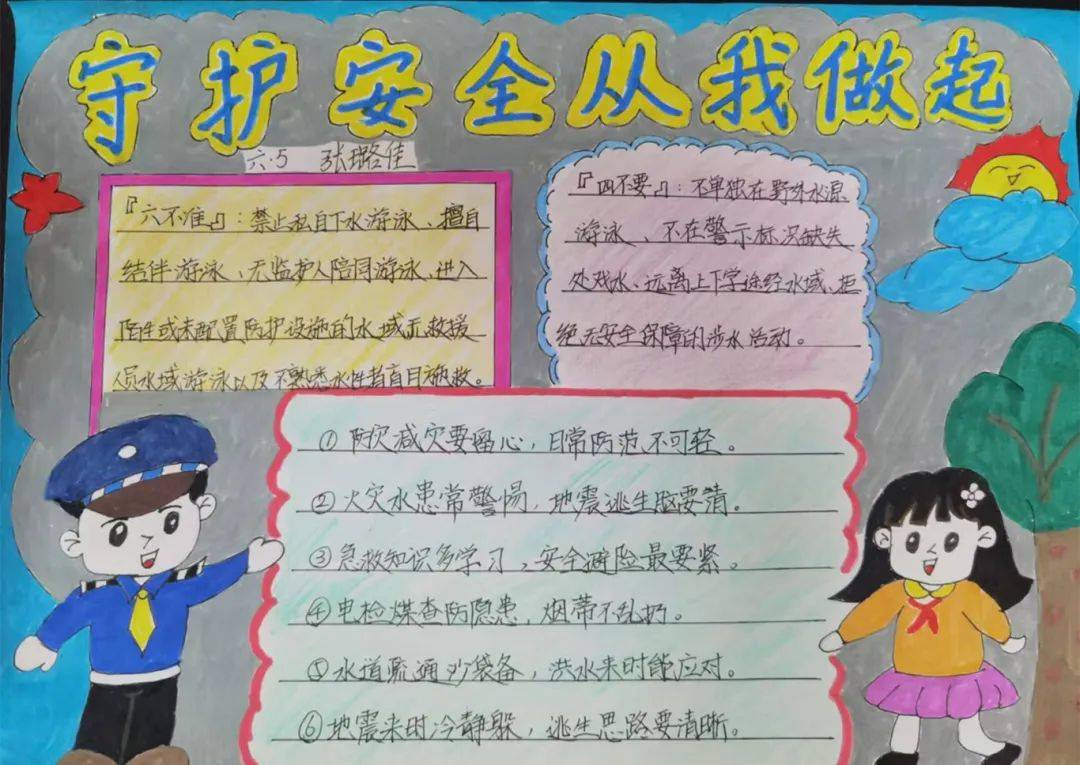 守护安全从我做起
六.5 张璐佳
『六不准』:禁止私自下水游泳、擅自
结伴游泳、无监护人陪同游泳、进入
陌生或未配置防护设施的水域无救援
人员水域游泳以及不熟悉水性者盲目施救。
『四不要』:不单独在野外水源
游泳、不在警示标识缺失
处戏水、远离上下学途经水域、拒
绝无安全保障的涉水活动。
①防灾减灾要留心,日常防范不可轻。
②火灾水患常警惕,地震逃生脑要清。
③急救知识多学习,安全避险最要紧。
④电检煤查防隐患,烟蒂不乱扔。
⑤水道疏通沙袋备,洪水来时能应对。
⑥地震来时冷静躲,逃生思路要清晰。